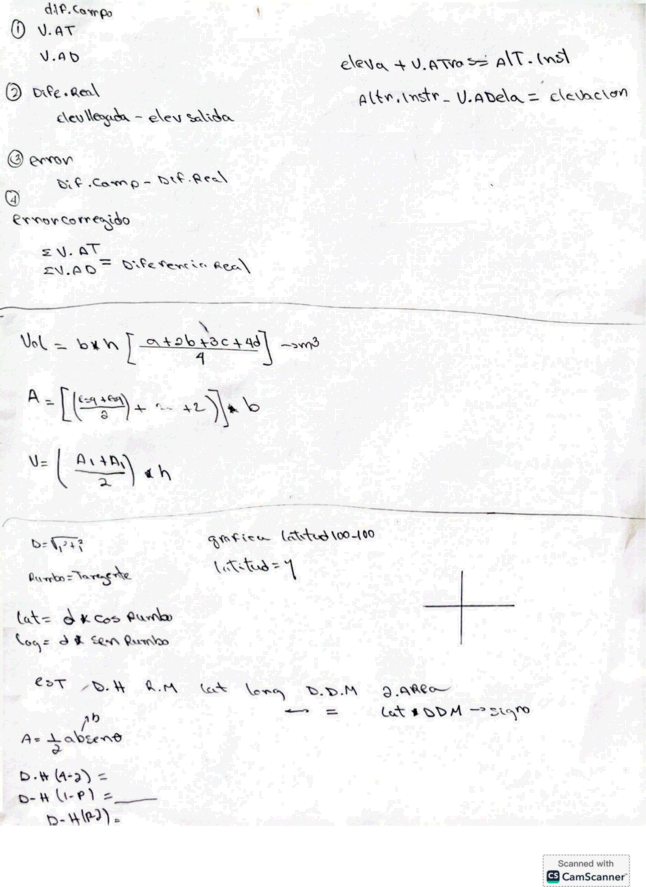 dif.Campo
① V.AT
V.AD
eleva + V.ATras = Alt.Inst
Altr.Instr - V.ADela = elevacion
② Dife.Real
elev llegada - elev salida
③ error
Dif.Camp - Dif.Real
④
error corregido
Σ V.AT
Σ V.AD = Diferencia Real
Vol = b*h [ a+2b+3c+4d / 4 ] → m³
A = [( /2) + ... +2)] * b
V = ( A₁+A₁ / 2 ) * h
D=√
grafica latitud 100-100
Rumbo = Tangente
latitud = y
Lat = d * cos Rumbo
Log = d * sen Rumbo
est D.H R.M lat long D.D.M 2.Area
← = Lat * DDM → signo
b
A = 1/2 ab senθ
D.H (1-2) =
D-H (1-P) = ____
D-H (P-2) =
Scanned with
CS CamScanner